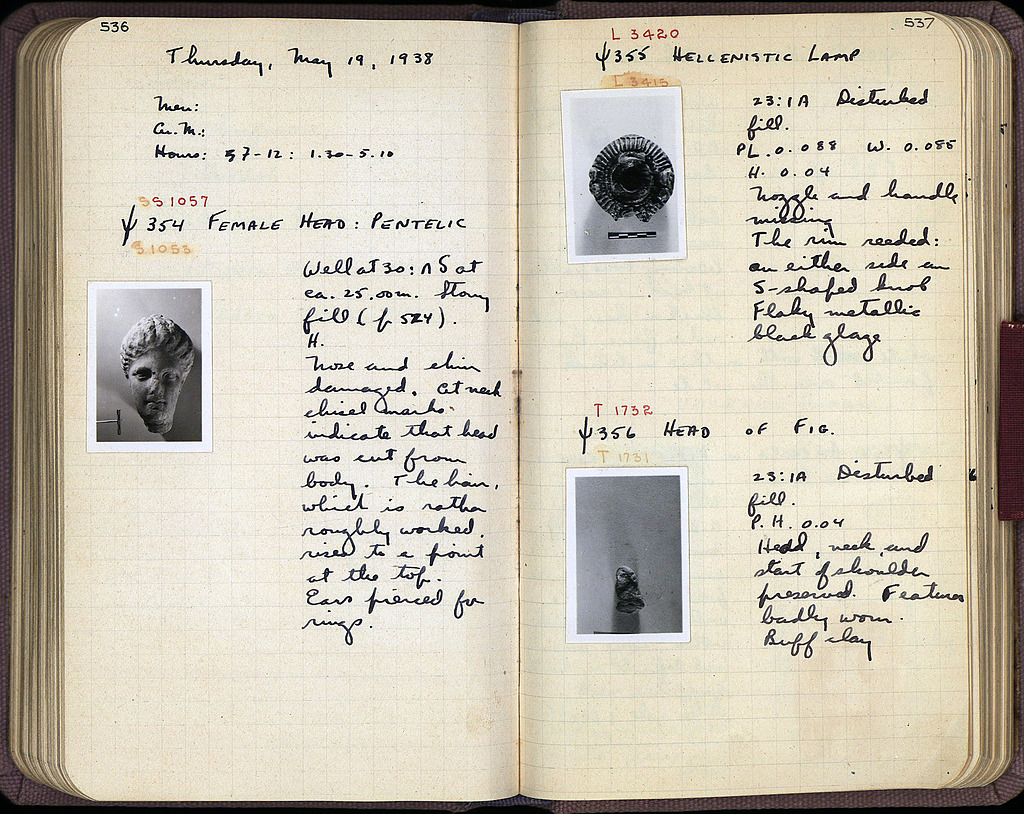 536
Thursday, May 19, 1938
Men:
Cu. M.:
Hours: 7-12: 1.30-5.10
S 1057
ψ 354 FEMALE HEAD: PENTELIC
S 1053
Well at 30: ΛS at
ca. 25.00m. Stony
fill (p. 524).
H.
Nose and chin
damaged. At neck
chisel marks
indicate that head
was cut from
body. The hair,
which is rather
roughly worked,
rises to a point
at the top.
Ears pierced for
rings.
537
L 3420
ψ355 HELLENISTIC LAMP
L 3415
23:1A Disturbed
fill.
PL. 0.088 W. 0.085
H. 0.04
Nozzle and handle
missing
The rim reeded:
on either side an
S-shaped knob
Flaky metallic
black glaze
T 1732
ψ356 HEAD OF FIG.
T 1731
23:1A Disturbed
fill.
P. H. 0.04
Head, neck, and
start of shoulder
preserved. Features
badly worn.
Buff clay